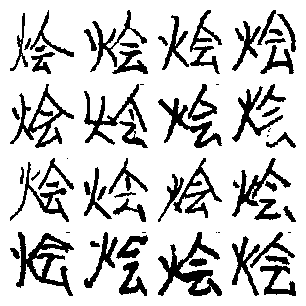 烩烩烩烩
烩烩烩烩
烩烩烩烩
烩烩烩烩